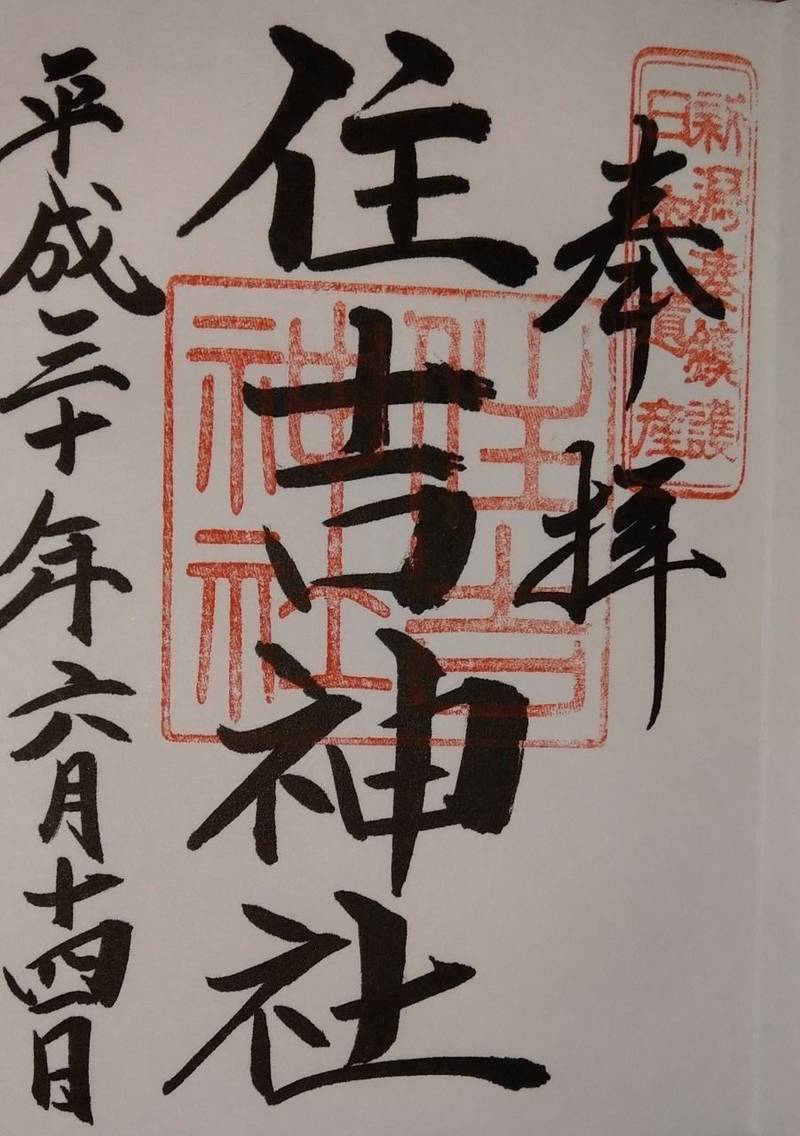 奉拝
新潟湊鎮護
住吉神社
住吉
神社
平成三十年六月十四日